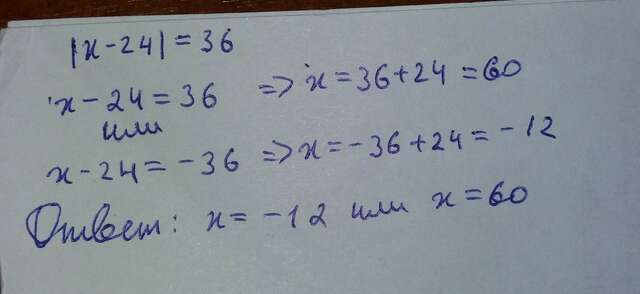 |x-24|=36
x-24=36 => x=36+24=60
или
x-24=-36 => x=-36+24=-12
Ответ: x=-12 или x=60